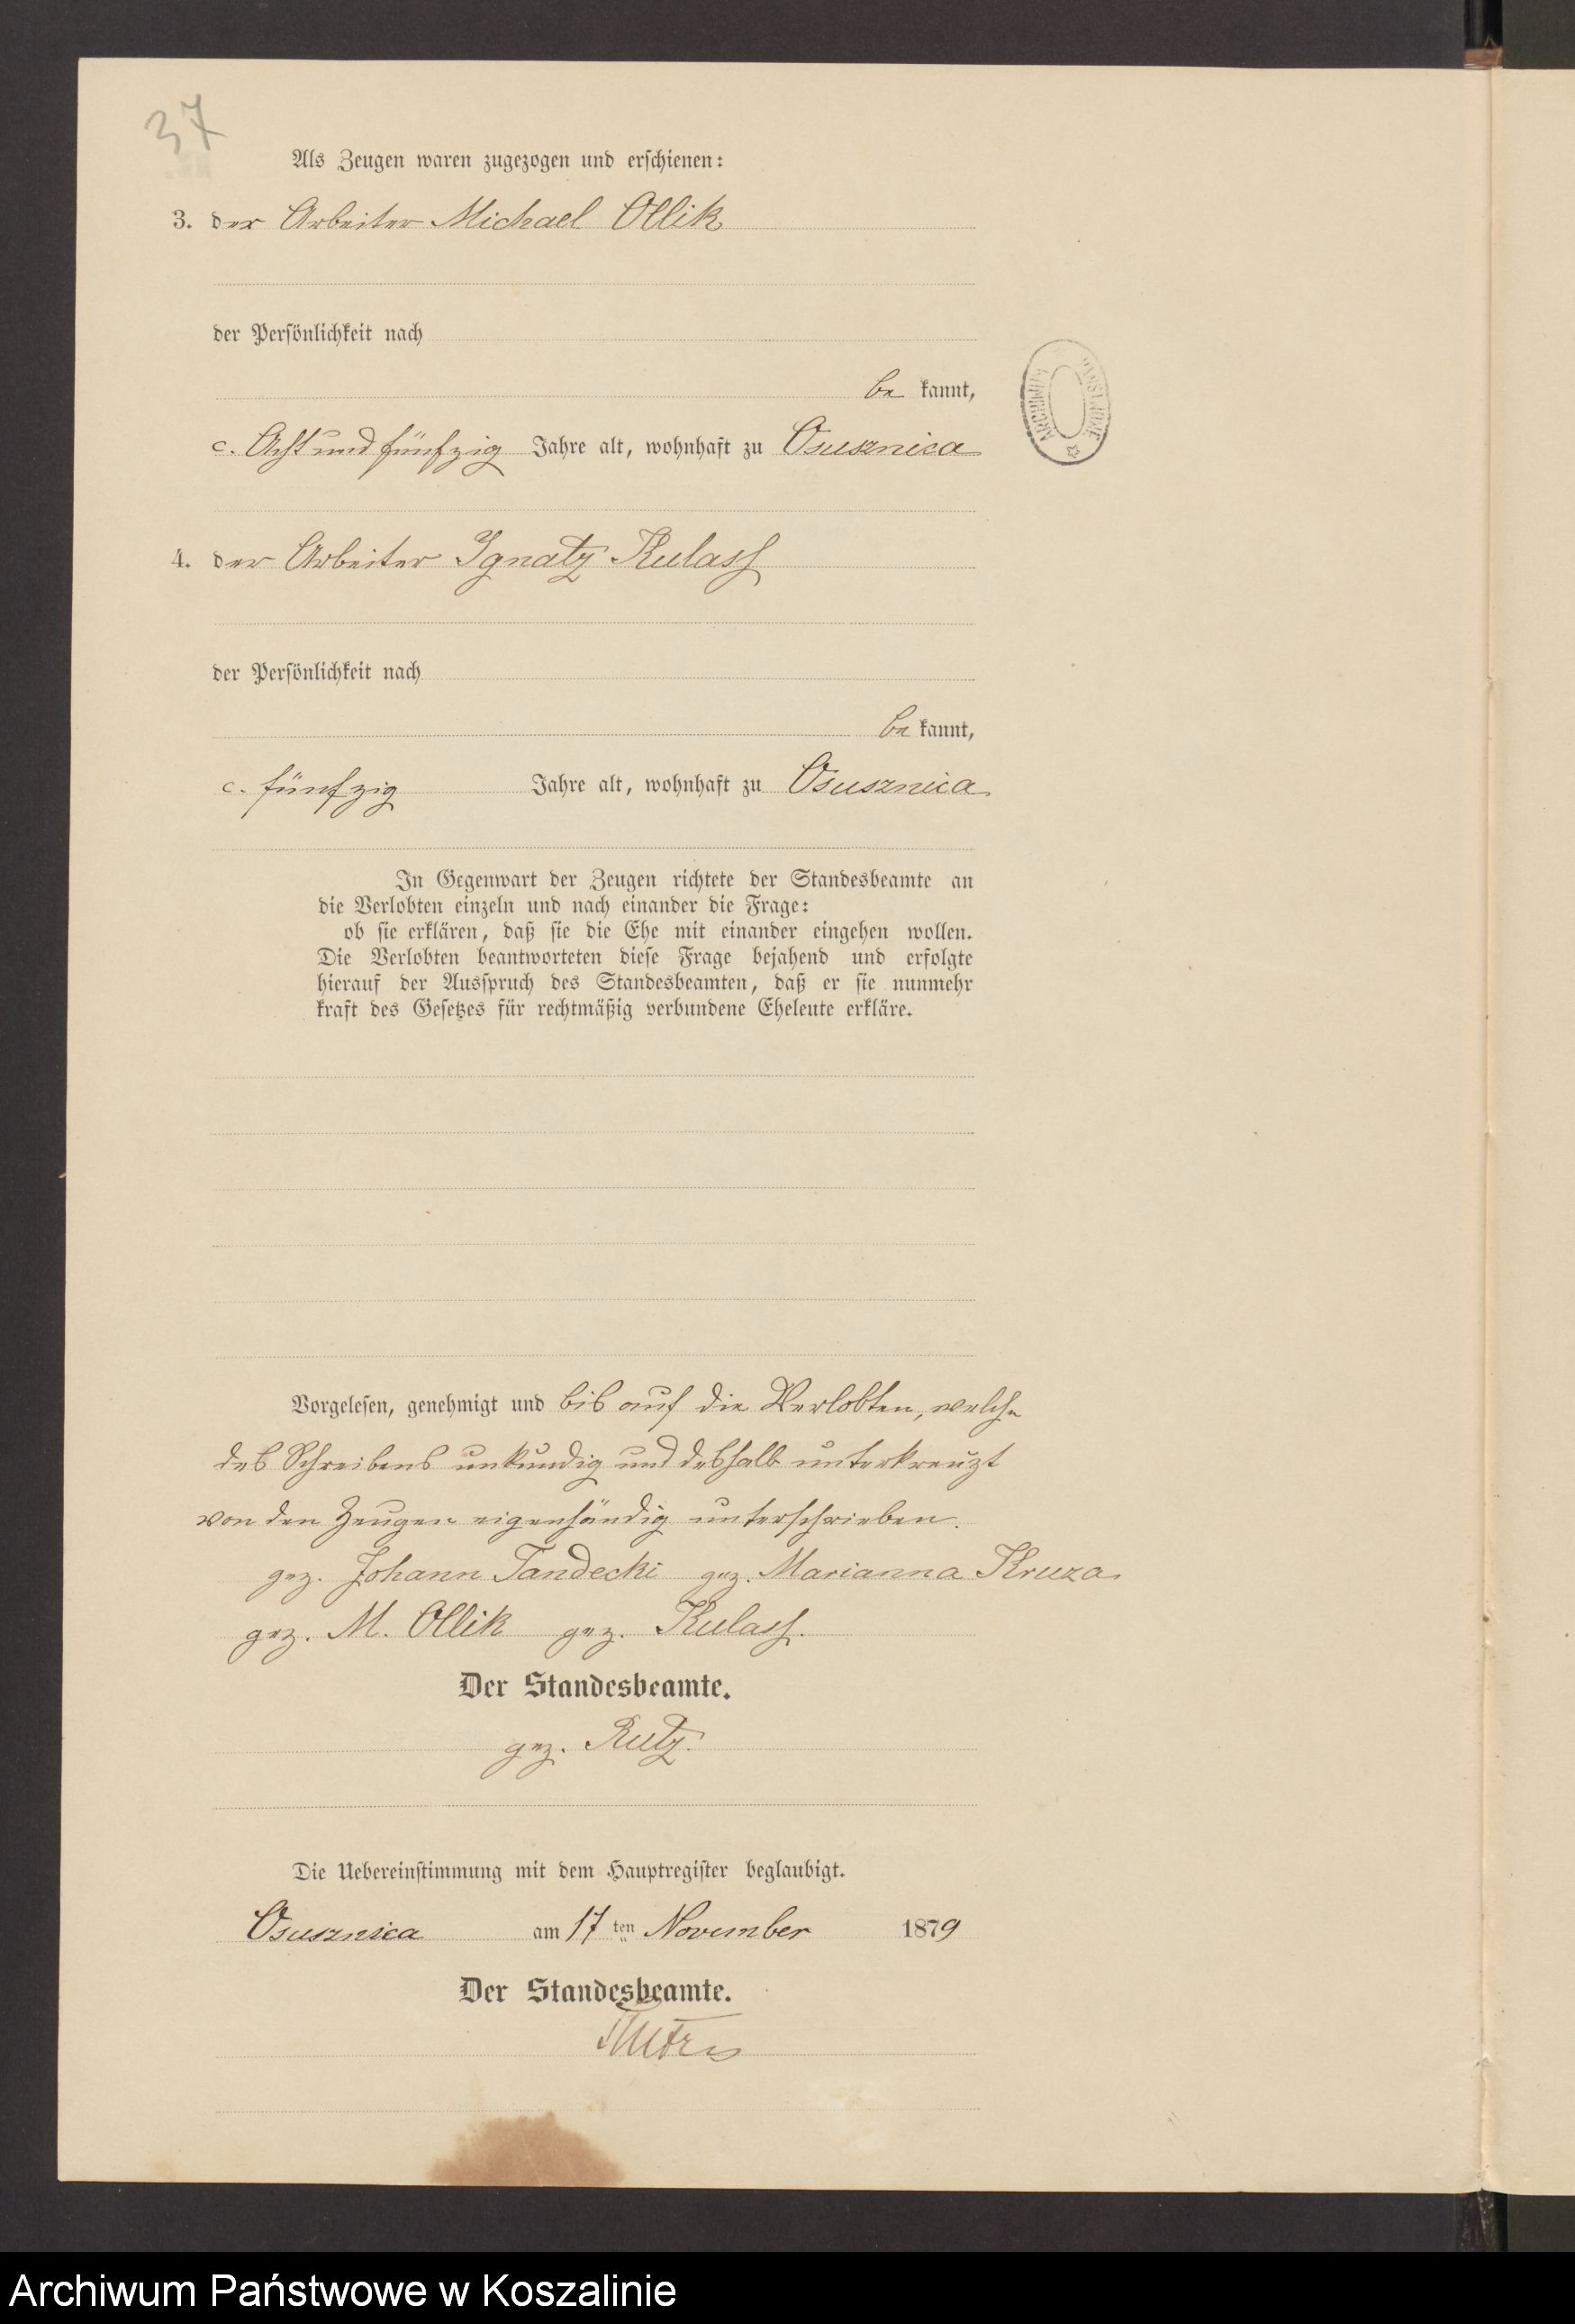 37
Als Zeugen waren zugezogen und erschienen:
3. der Arbeiter Michael Ollik
der Persönlichkeit nach
be kannt,
c. Acht und fünfzig Jahre alt, wohnhaft zu Osusznica
4. der Arbeiter Ignatz Kulass
der Persönlichkeit nach
be kannt,
c. fünfzig Jahre alt, wohnhaft zu Osusznica
In Gegenwart der Zeugen richtete der Standesbeamte an
die Verlobten einzeln und nach einander die Frage:
ob sie erklären, daß sie die Ehe mit einander eingehen wollen.
Die Verlobten beantworteten diese Frage bejahend und erfolgte
hierauf der Ausspruch des Standesbeamten, daß er sie nunmehr
kraft des Gesetzes für rechtmäßig verbundene Eheleute erkläre.
Vorgelesen, genehmigt und bis auf die Verlobten, welche
des Schreibens unkundig und deshalb unterkreuzt
von den Zeugen eigenhändig unterschrieben.
gez. Johann Tandecki gez. Marianna Kruza
gez. M. Ollik gez. Kulass.
Der Standesbeamte.
gez. Rutz.
Die Uebereinstimmung mit dem Hauptregister beglaubigt.
Osusznica am 17 ten November 1879
Der Standesbeamte.
ARCHIWUM PAŃSTWOWE
Archiwum Państwowe w Koszalinie